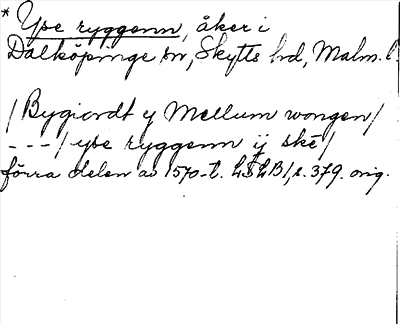 * Ype ryggenn, åker i
Dalköpinge sn, Skytts hd, Malm. l.
/Bygiordt y Mellum wongen/
---/ ype ryggenn ij ske/
förra delen av 1570-t. LSLB1, s. 379. orig.